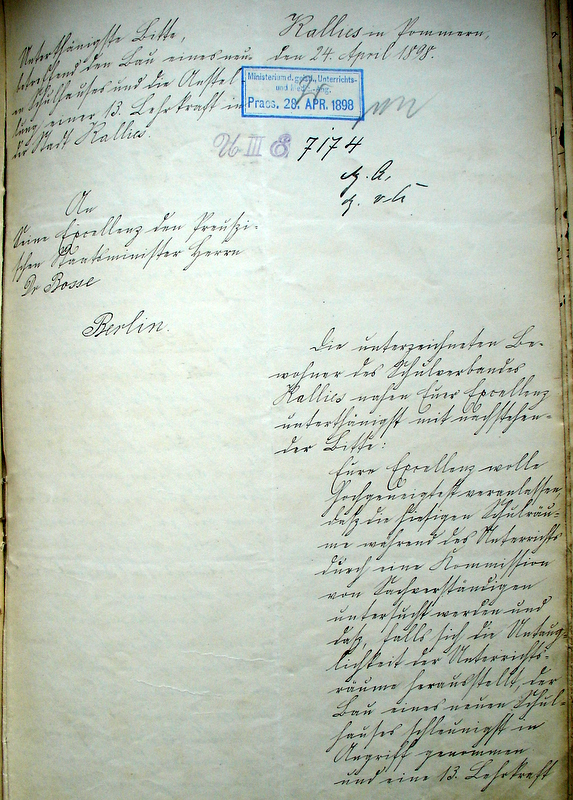 Kallies in Pommern,
den 24. April 1898.
Unterthänigste Bitte,
betreffend den Bau eines neu-
en Schulhauses und die Anstel-
lung einer 13. Lehrkraft in
der Stadt Kallies.
Ministerium d. geistl., Unterrichts-
und Med. Ang.
Praes. 29. APR. 1898
U III 7174
An
Seine Excellenz den Preußi-
schen Staatsminister Herrn
Dr Bosse
Berlin.
Die unterzeichneten Be-
wohner des Schulverbandes
Kallies nahen Euer Excellenz
unterthänigst mit nachstehen-
der Bitte:
Eure Excellenz wolle
hochgeneigtest veranlassen,
daß die hiesigen Schulräu-
me während des Unterrichts
durch eine Kommission
von Sachverständigen
untersucht werden und
daß, falls sich die Untaug-
lichkeit der Unterrichts-
räume herausstellt, der
Bau eines neuen Schul-
hauses schleunigst in
Angriff genommen
und eine 13. Lehrkraft